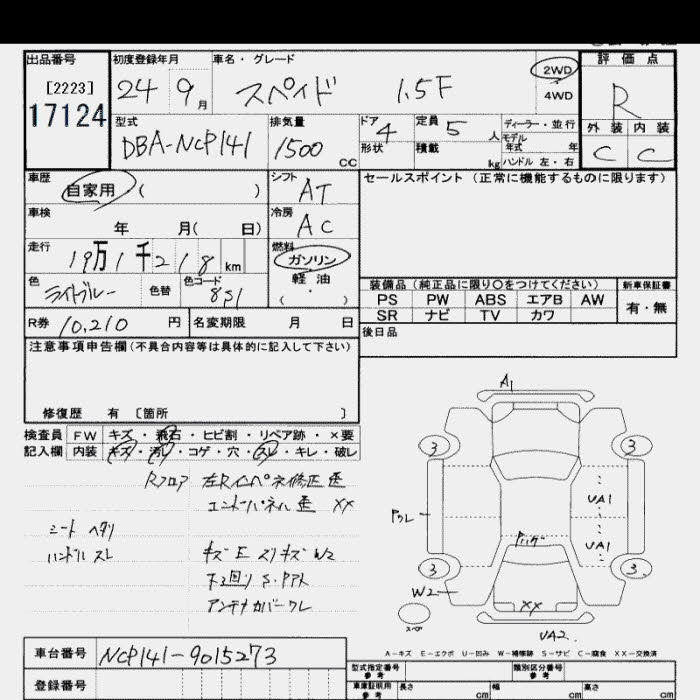 出品番号
[2223]
17124
初度登録年月
24 9月
車名・グレード
スペイド 1.5F
2WD
4WD
評価点
R
外装 内装
C C
型式
DBA-NCP141
排気量
1500 CC
ドア
4
形状
定員
5 人
積載
kg
ディーラー・並行
モデル
年式 年
ハンドル 左・右
車歴
自家用 ( )
シフト
AT
セールスポイント (正常に機能するものに限ります)
車検
年 月( 日)
冷房
AC
走行
19万1千218 km
燃料
ガソリン
軽油
( ・ )
色
ライトブルー
色替
色コード
8S1
装備品(純正品に限り○をつけてください)
新車保証書
PS PW ABS エアB AW
SR ナビ TV カワ
有・無
R券 10,210 円
名変期限 月 日
後日品
注意事項申告欄(不具合内容等は具体的に記入して下さい)
修復歴 有 〔箇所 〕
検査員
記入欄
FW キズ・飛石・ヒビ割・リペア跡・×要
内装 キズ・汚レ・コゲ・穴・スレ・キレ・破レ
Rフロア 左Rインパネ修正歪
エンドパネル歪 XX
シート ヘタリ
ハンドル スレ
キズE スリキズ W2
下回り S・Pアト
アンテナカバーワレ
A1
3
3
ワレ
UA1
UA1
3
3
W2
XX
スペア
UA2.
A-キズ E-エクボ U-凹み W-補修跡 S-サビ C-腐食 XX-交換済
車台番号
NCP141-9015273
登録番号
型式指定番号
参考
類別区分番号
参考
車庫証明用
参考
長さ cm
幅 cm
高さ cm